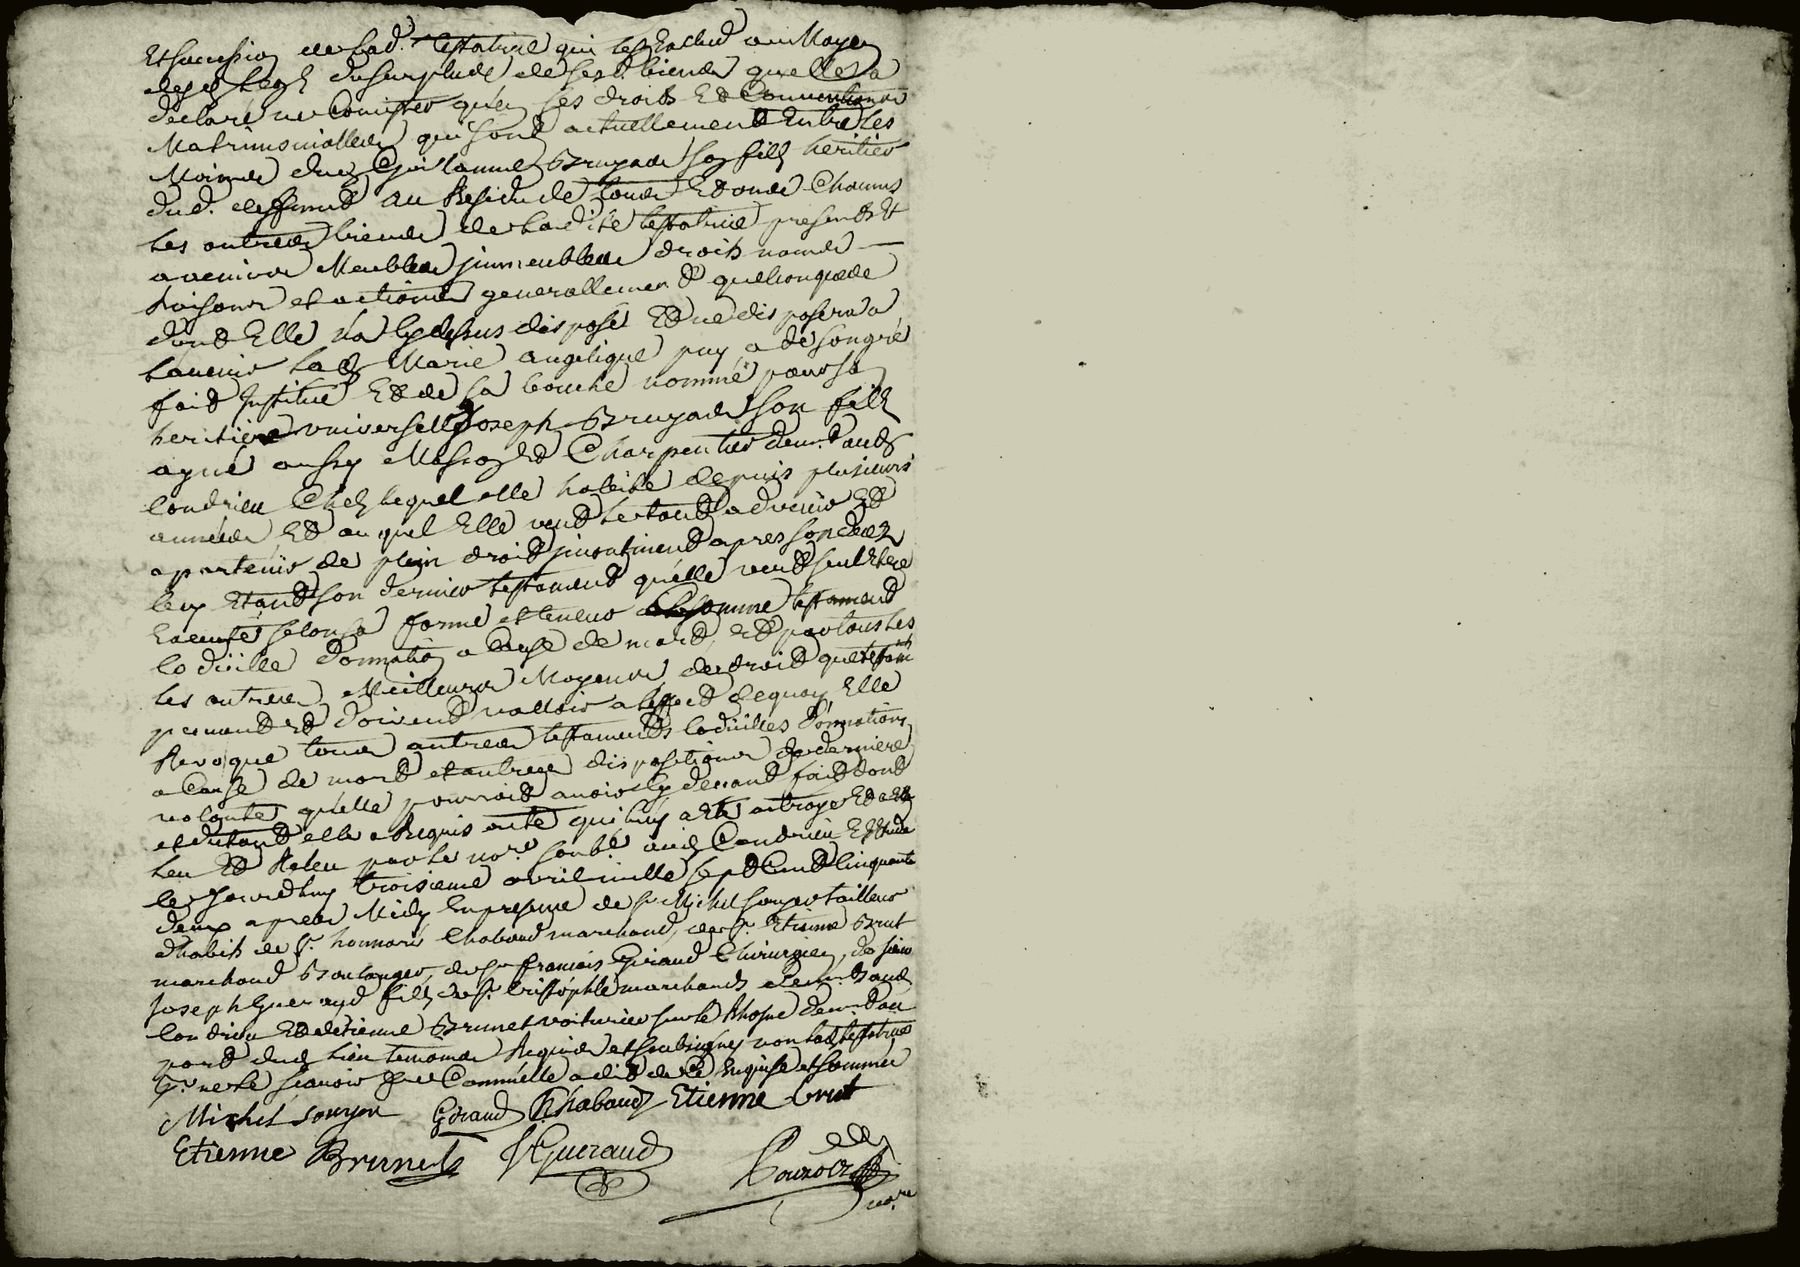 et succession de lad. testatrice qui les exclud au moyen
desd. legs du surplus de sesd. biens quelle a
declaré ne consister qu'en ses droits et conventions
matrimonialles qui sont actuellement entre les
mains de Guillaume Bruyas son fils heritier
dud. deffunt au residu de tous et uns chacuns
les autres biens de ladite testatrice presents et
avenir meubles jmmeubles droits noms
raisons et actions generallement quelconques
dont elle n'a cy dessus disposé et ne disposera a
lavenir lad. Marie angelique puy a de son gré
fait jnstitué et de sa bouche nommé pour son
heritier universelle Joseph Bruyas son fils
ayné aussy Masson et Charpentier demt. aud.
Condrieu Chez lequel elle habite depuis plusieurs
années et auquel Elle veut le tout advenir et
apartenir de plein droit jncontinent apres son deces
Cecy etant son dernier testament quelle veut seul etre
Executé selon sa forme et teneur Comme testament
Codicille donnation a Cause de mort, et par tous les
les autres Meilleurs Moyens de droit que testam
peuvent et doivent valloir a leffect dequoy Elle
Revoque tous autres testaments Codicilles donnations
a Cause de mort et autres dispositions de derniere
volonté quelle pourroit avoir cy devant fait dont
et du tout elle a Requis acte qui luy a eté octroyé et a eté
leu et Releu par le nore. soubé. aud. Condrieu Etude
le jourdhuy troisieme avril mille sept Cent Cinquante
deux apres Midy En presence de sr. Michel Souyon tailleur
dhabits de sr. honnoré Chaboud marchand, de sr. Etienne Brut
marchand Boulanger, de sr. francois Giraud Chirurgien, de sieur
Joseph Gueraud fils de sr. Cristophle marchands demts. aud.
Condrieu et detienne Brunet voiturier sur le Rhosne demt. au
port dud. lieu temoins Requis et soubsignés non lad. testatrice
pr. ne le scavoir fre Comme elle a dit de ce Enquise et sommee
Michel Souyon Giraud Chabaud Etienne brut
Etienne Brunet J Gueraud
nore.